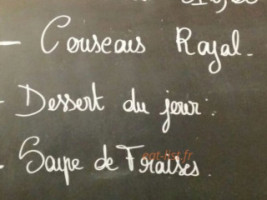 - Couscous Royal.
- Dessert du jour :
- Soupe de Fraises.